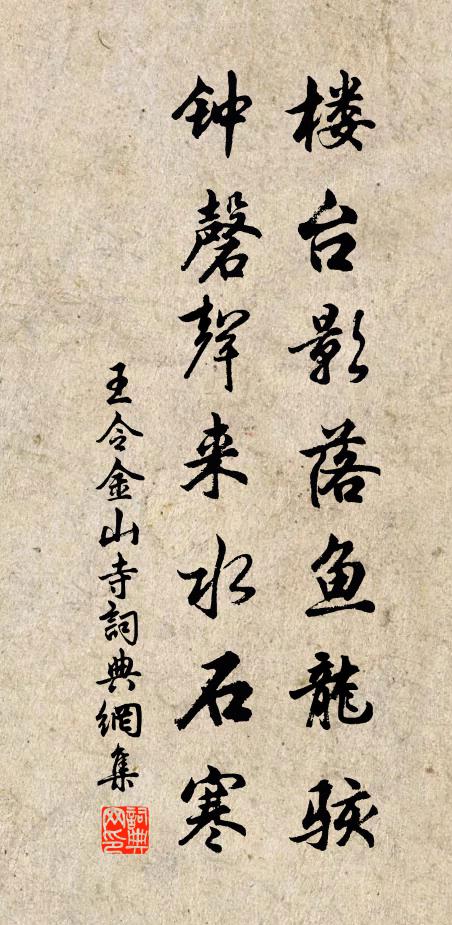 楼台影落鱼龍骇
钟磬聲来水石寒
王令金山寺詞典網集
詞典网印